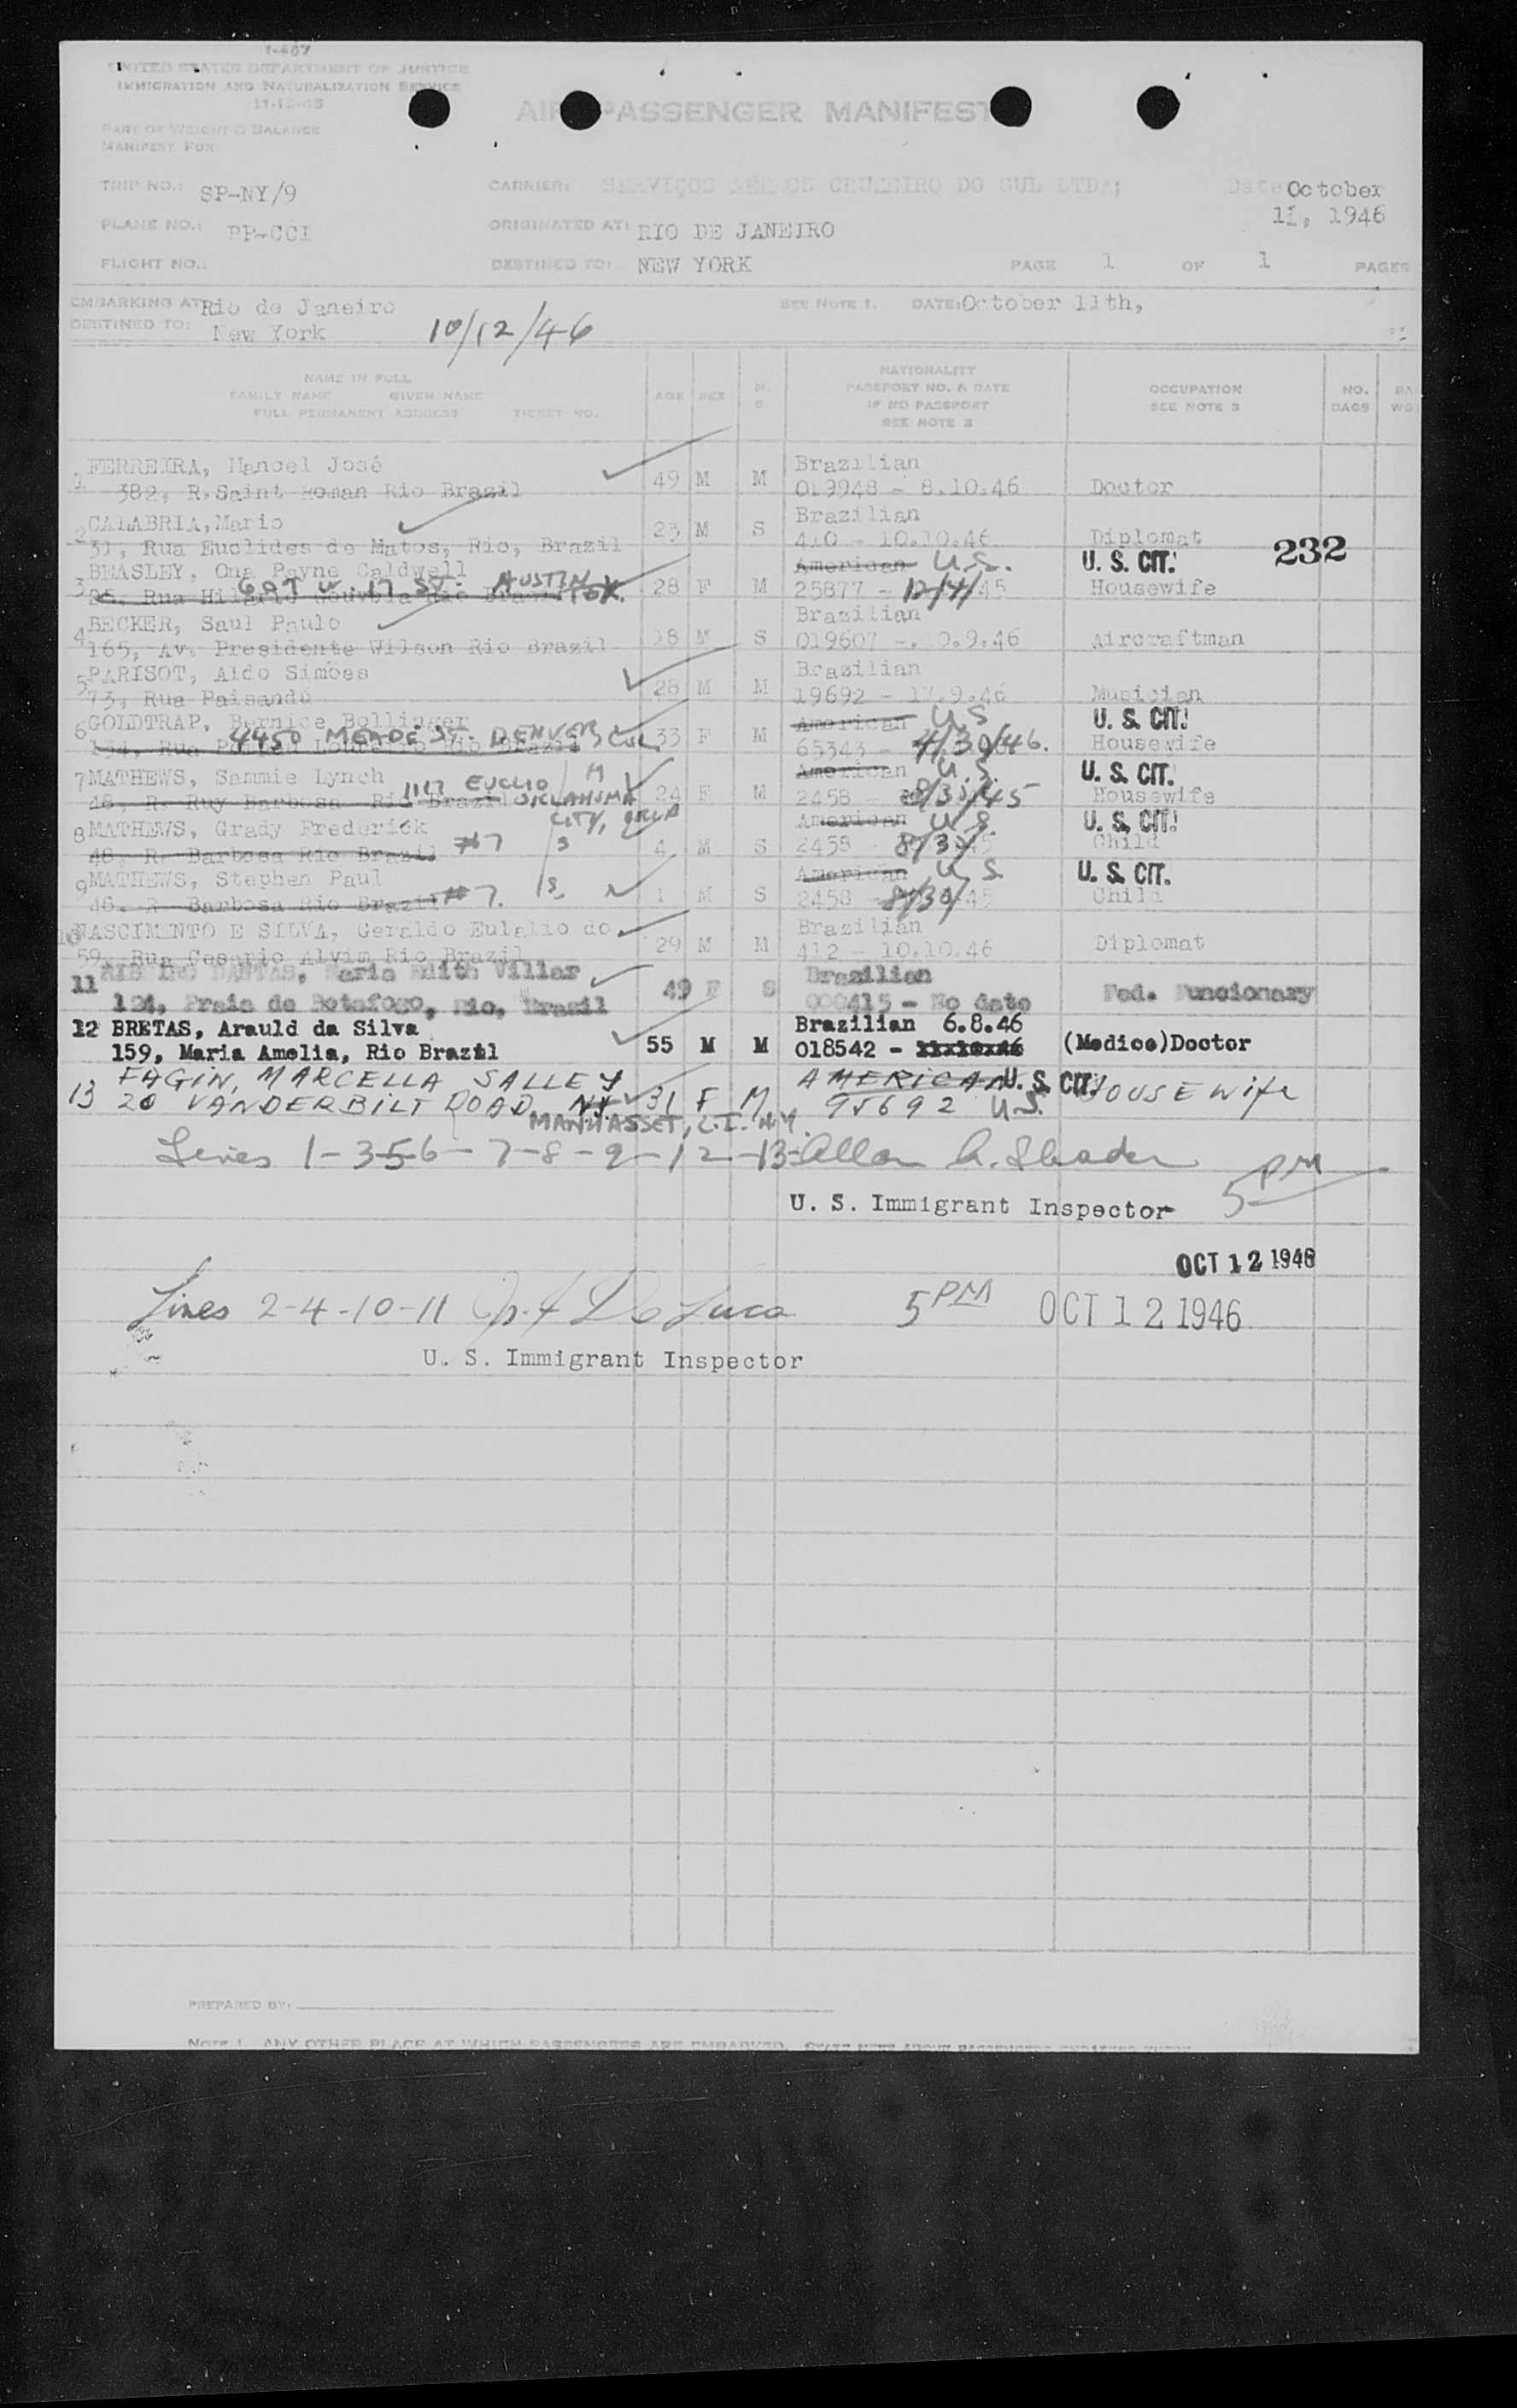 I-467
UNITED STATES DEPARTMENT OF JUSTICE
IMMIGRATION AND NATURALIZATION SERVICE
11-15-45
AIR PASSENGER MANIFEST
PART OF WEIGHT & BALANCE
MANIFEST FOR
TRIP NO.: SP-NY/9 CARRIER: SERVIÇOS AEREOS CRUZEIRO DO SUL LTDA; Date October
11, 1946
PLANE NO.: PP-CCI ORIGINATED AT: RIO DE JANEIRO
FLIGHT NO.: DESTINED TO: NEW YORK PAGE 1 OF 1 PAGES
EMBARKING AT Rio de Janeiro SEE NOTE 1. DATE: October 11th,
DESTINED TO: New York 10/12/46
NAME IN FULL
FAMILY NAME GIVEN NAME
FULL PERMANENT ADDRESS TICKET NO.
AGE SEX M. S.
NATIONALITY
PASSPORT NO. & DATE
IF NO PASSPORT
SEE NOTE 2
OCCUPATION
SEE NOTE 3
NO. BAGS
BA WG
1 FERREIRA, Manoel José Brazilian
382, R. Saint Roman Rio Brazil 49 M M 019948 - 8.10.46 Doctor
2 CALABRIA, Mario Brazilian
31, Rua Euclides de Matos, Rio, Brazil 23 M S 410 - 10.10.46 Diplomat
232
3 BEASLEY, Ona Payne Caldwell American U.S. U. S. CIT.
W. 17 ST. AUSTIN TEX.
Rua 28 F M 25877 - 12/4/45 Housewife
4 BECKER, Saul Paulo Brazilian
165, Av. Presidente Wilson Rio Brazil 18 M S 019607 - 10.9.46 Aircraftman
5 PARISOT, Aldo Simões Brazilian
73, Rua Paisandú 28 M M 19692 - 17.9.46 Musician
6 GOLDTRAP, Bernice Bollinger American U.S U. S. CIT.
4450 MEADE ST. DENVER, COL.
33 F M 65343 - 4/30/46. Housewife
7 MATHEWS, Sammie Lynch M American U.S. U. S. CIT.
1117 EUCLID OKLAHOMA CITY, OKLA
48, R. Ruy Barbosa Rio Brazil 24 F M 2458 - 8/30/45 Housewife
8 MATHEWS, Grady Frederick American U.S. U. S. CIT.
48, R. Barbosa Rio Brazil #7 S 4 M S 2458 - 8/30/45 Child
9 MATHEWS, Stephen Paul American U.S. U. S. CIT.
48, R. Barbosa Rio Brazil #7. S. 1 M S 2458 8/30/45 Child
10 NASCIMENTO E SILVA, Geraldo Eulalio do Brazilian
59, Rua Cesario Alvim Rio Brazil 29 M M 412 - 10.10.46 Diplomat
11 RIBEIRO DANTAS, Maria Edith Villar Brazilian
194, Praia de Botafogo, Rio, Brazil 49 F S 000415 - No date Fed. Funcionary
12 BRETAS, Arauld da Silva Brazilian 6.8.46
159, Maria Amelia, Rio Brazil 55 M M 018542 - (Medico)Doctor
13 FAGIN, MARCELLA SALLEY AMERICAN U. S. CIT. HOUSEWife
20 VANDERBILT ROAD NY 31 F M 95692 U.S.
MANHASSET, L.I. N.Y.
Lines 1-3-5-6-7-8-9-12-13- Allan A. Shader
U. S. Immigrant Inspector 5 PM
OCT 12 1946
Lines 2-4-10-11 De Luca 5 PM OCT 12 1946
U. S. Immigrant Inspector
PREPARED BY:
NOTE 1. ANY OTHER PLACE AT WHICH PASSENGERS ARE EMBARKED.